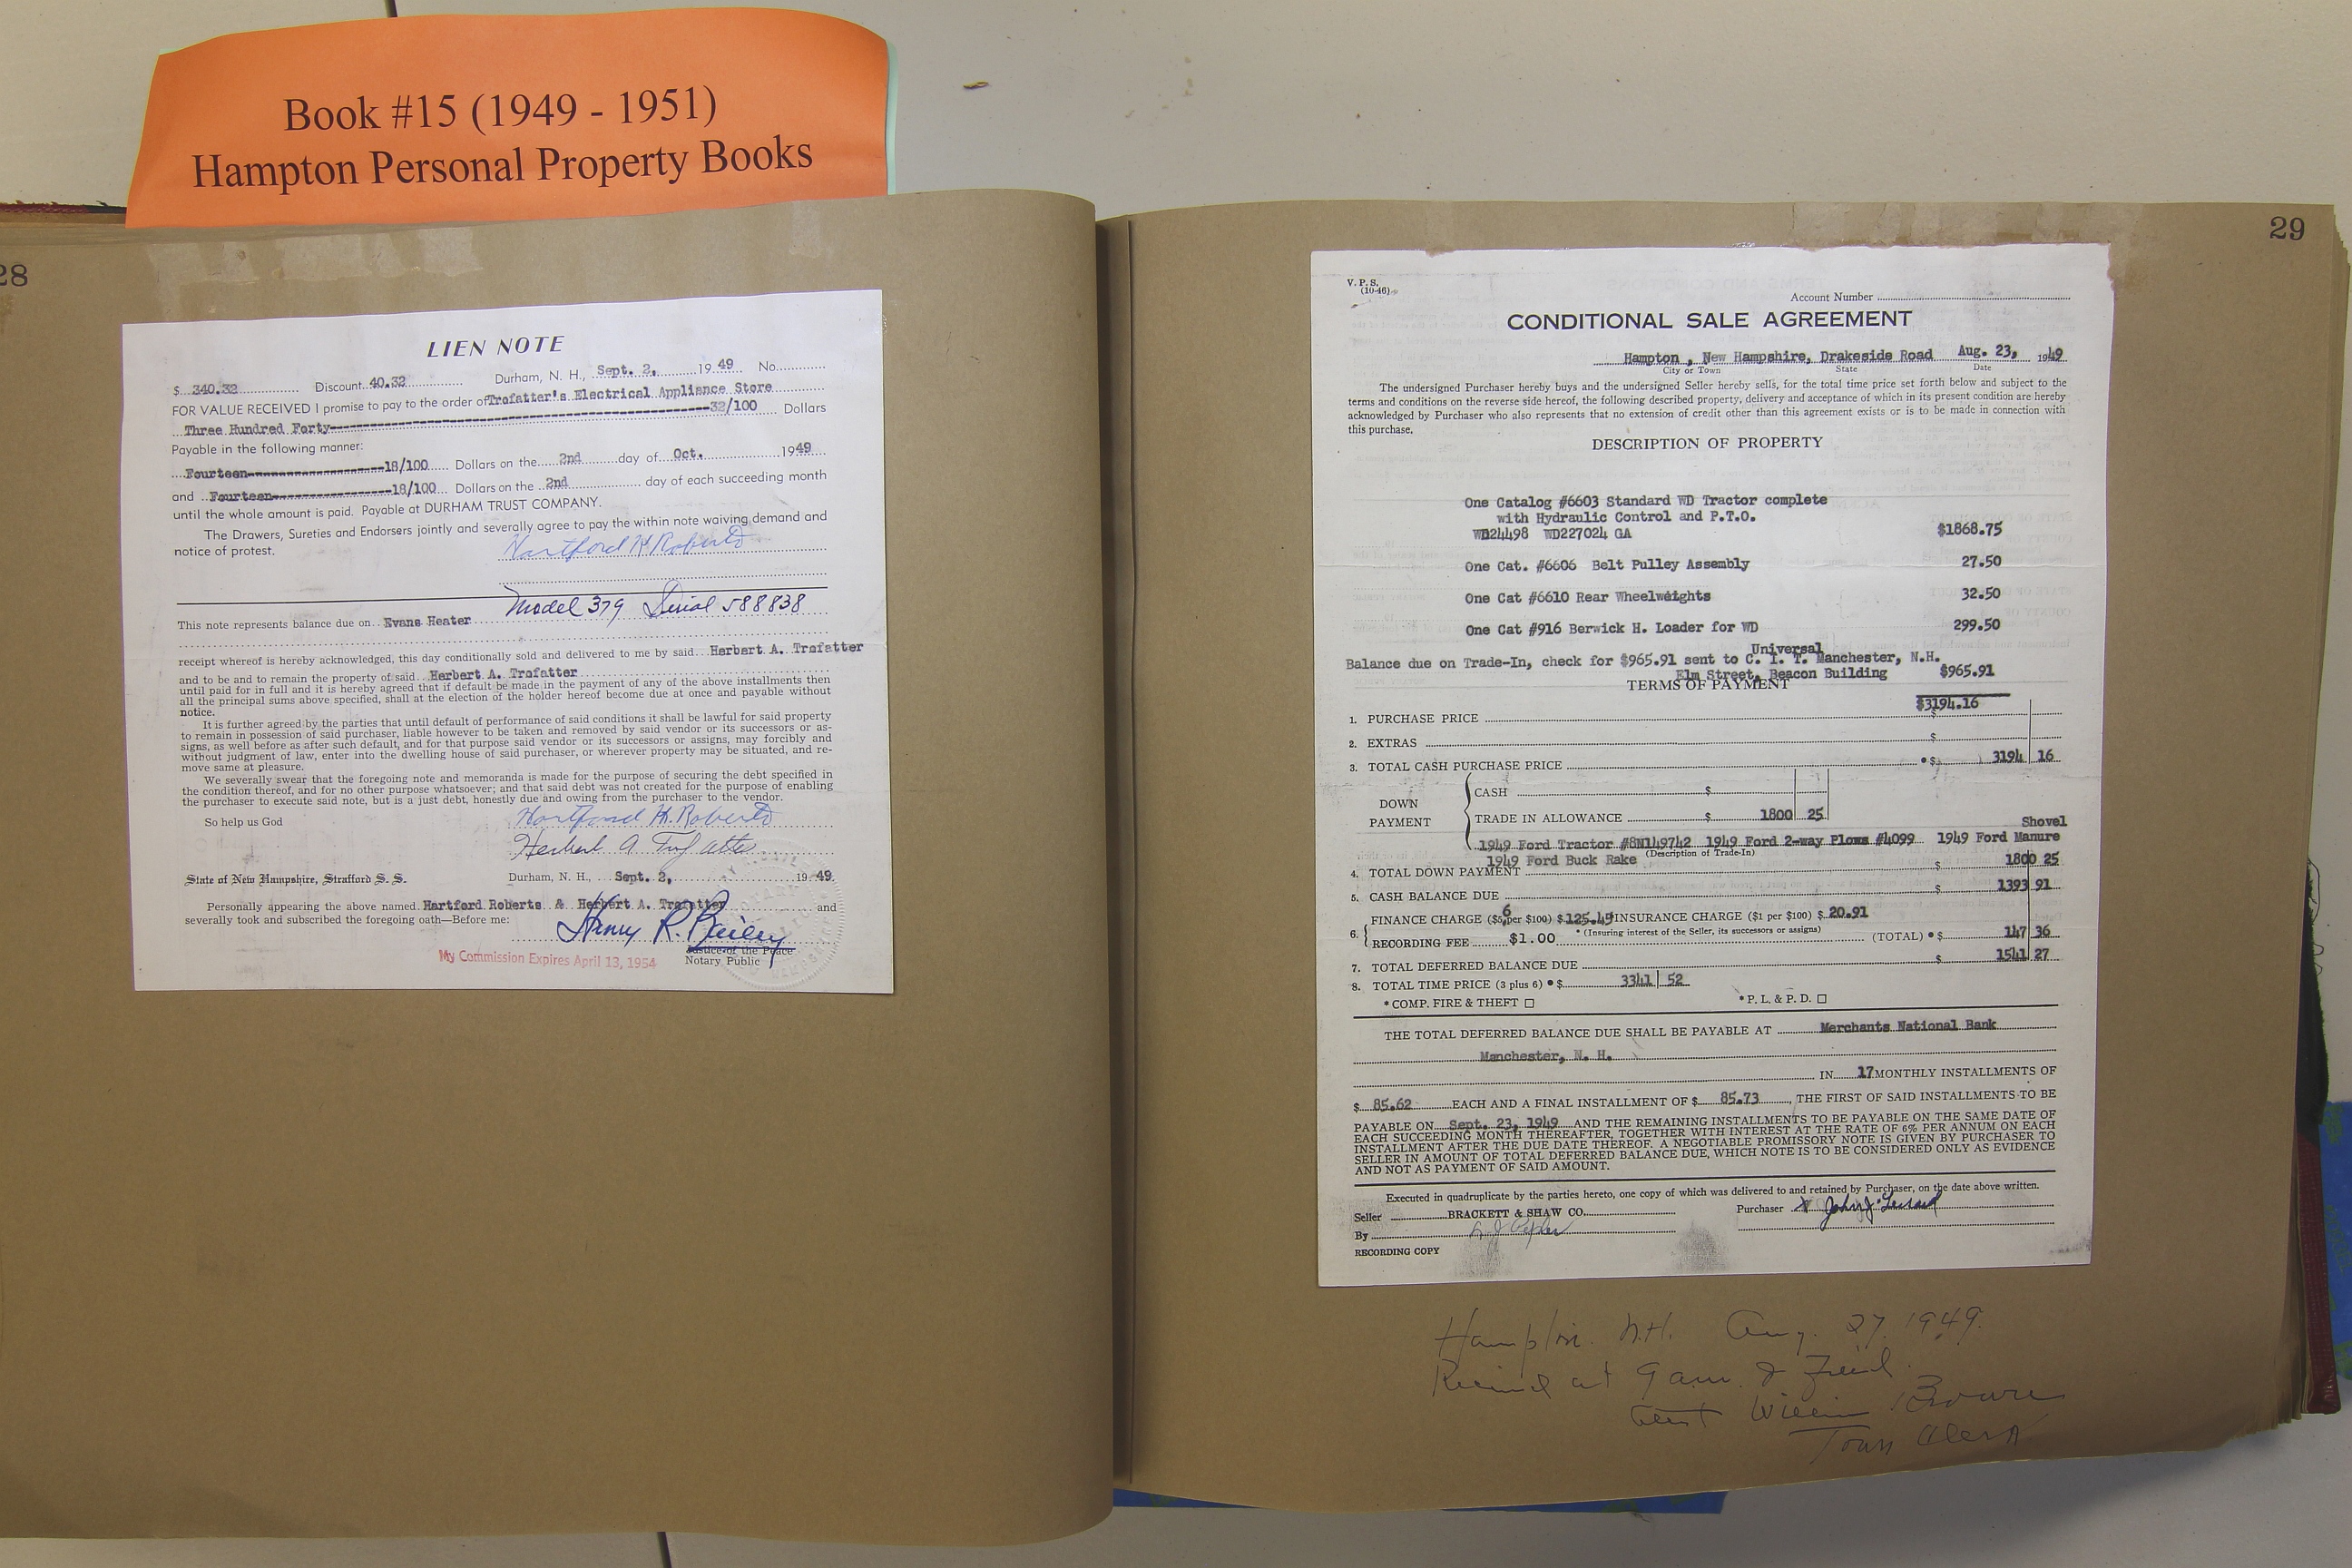 Book #15 (1949 - 1951)
Hampton Personal Property Books
28
LIEN NOTE
$ 340.32 Discount 40.32 Durham, N. H., Sept. 2, 19 49 No.
FOR VALUE RECEIVED I promise to pay to the order of Trofatter's Electrical Appliance Store
Three Hundred Forty--------32/100 Dollars
Payable in the following manner:
Fourteen--------18/100 Dollars on the 2nd day of Oct. 1949
and Fourteen--------18/100 Dollars on the 2nd day of each succeeding month
until the whole amount is paid. Payable at DURHAM TRUST COMPANY.
The Drawers, Sureties and Endorsers jointly and severally agree to pay the within note waiving demand and
notice of protest.
Hartford H. Roberts
Model 379 Serial 588838
This note represents balance due on Evans Heater
receipt whereof is hereby acknowledged, this day conditionally sold and delivered to me by said Herbert A. Trofatter
and to be and to remain the property of said Herbert A. Trofatter
until paid for in full and it is hereby agreed that if default be made in the payment of any of the above installments then
all the principal sums above specified, shall at the election of the holder hereof become due at once and payable without
notice.
It is further agreed by the parties that until default of performance of said conditions it shall be lawful for said property
to remain in possession of said purchaser, liable however to be taken and removed by said vendor or its successors or as-
signs, as well before as after such default, and for that purpose said vendor or its successors or assigns, may forcibly and
without judgment of law, enter into the dwelling house of said purchaser, or wherever property may be situated, and re-
move same at pleasure.
We severally swear that the foregoing note and memoranda is made for the purpose of securing the debt specified in
the condition thereof, and for no other purpose whatsoever; and that said debt was not created for the purpose of enabling
the purchaser to execute said note, but is a just debt, honestly due and owing from the purchaser to the vendor.
So help us God
Hartford H. Roberts
Herbert A Trofatter
State of New Hampshire, Strafford S. S. Durham, N. H., Sept. 2, 19 49.
Personally appearing the above named Hartford Roberts & Herbert A. Trofatter and
severally took and subscribed the foregoing oath—Before me:
Henry R. Bailey
Justice of the Peace
My Commission Expires April 13, 1954 Notary Public
29
V. P. S.
(10-46)
Account Number
CONDITIONAL SALE AGREEMENT
Hampton , New Hampshire, Drakeside Road Aug. 23, 1949
City or Town State Date
The undersigned Purchaser hereby buys and the undersigned Seller hereby sells, for the total time price set forth below and subject to the
terms and conditions on the reverse side hereof, the following described property, delivery and acceptance of which in its present condition are hereby
acknowledged by Purchaser who also represents that no extension of credit other than this agreement exists or is to be made in connection with
this purchase.
DESCRIPTION OF PROPERTY
One Catalog #6603 Standard WD Tractor complete
with Hydraulic Control and P.T.O.
WD24498 WD227024 GA $1868.75
One Cat. #6606 Belt Pulley Assembly 27.50
One Cat #6610 Rear Wheelweights 32.50
One Cat #916 Berwick H. Loader for WD 299.50
Universal
Balance due on Trade-In, check for $965.91 sent to C. I. T. Manchester, N.H.
Elm Street, Beacon Building $965.91
TERMS OF PAYMENT
$3194.16
1. PURCHASE PRICE $
2. EXTRAS $
3. TOTAL CASH PURCHASE PRICE • $ 3194 16
DOWN PAYMENT
CASH $
TRADE IN ALLOWANCE $ 1800 25
Shovel
1949 Ford Tractor #8N149742 1949 Ford 2-way Plows #4099 1949 Ford Manure
1949 Ford Buck Rake (Description of Trade-In)
4. TOTAL DOWN PAYMENT $ 1800 25
5. CASH BALANCE DUE $ 1393 91
6. FINANCE CHARGE ($6 per $100) $125.45 INSURANCE CHARGE ($1 per $100) $ 20.91
* (Insuring interest of the Seller, its successors or assigns)
RECORDING FEE $1.00 (TOTAL) • $ 147 36
7. TOTAL DEFERRED BALANCE DUE $ 1541 27
8. TOTAL TIME PRICE (3 plus 6) • $ 3341 52
* COMP. FIRE & THEFT ☐ * P. L. & P. D. ☐
THE TOTAL DEFERRED BALANCE DUE SHALL BE PAYABLE AT Merchants National Bank
Manchester, N. H.
IN 17 MONTHLY INSTALLMENTS OF
$ 85.62 EACH AND A FINAL INSTALLMENT OF $ 85.73, THE FIRST OF SAID INSTALLMENTS TO BE
PAYABLE ON Sept. 23, 1949 AND THE REMAINING INSTALLMENTS TO BE PAYABLE ON THE SAME DATE OF
EACH SUCCEEDING MONTH THEREAFTER, TOGETHER WITH INTEREST AT THE RATE OF 6% PER ANNUM ON EACH
INSTALLMENT AFTER THE DUE DATE THEREOF. A NEGOTIABLE PROMISSORY NOTE IS GIVEN BY PURCHASER TO
SELLER IN AMOUNT OF TOTAL DEFERRED BALANCE DUE, WHICH NOTE IS TO BE CONSIDERED ONLY AS EVIDENCE
AND NOT AS PAYMENT OF SAID AMOUNT.
Executed in quadruplicate by the parties hereto, one copy of which was delivered to and retained by Purchaser, on the date above written.
Seller BRACKETT & SHAW CO. Purchaser x John J.
By
RECORDING COPY
Hampton. N.H. Aug. 27. 1949.
Received at 9 a.m. & Filed.
William Brown
Town Clerk